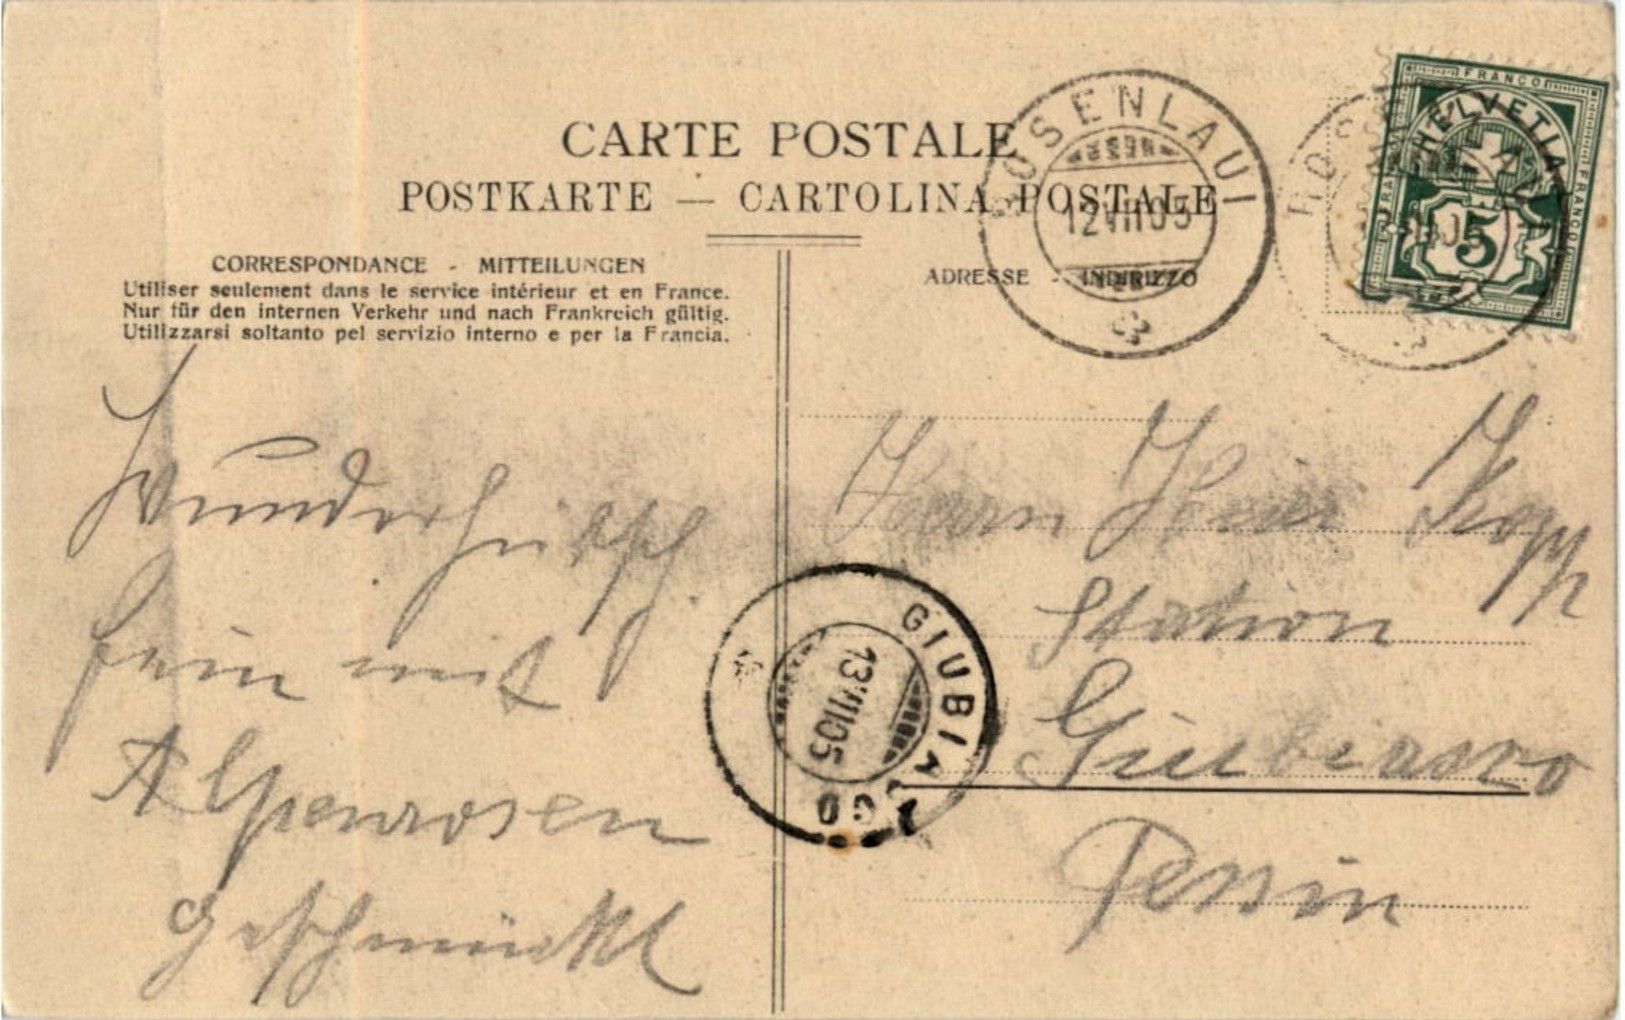 CARTE POSTALE
POSTKARTE — CARTOLINA POSTALE
CORRESPONDANCE - MITTEILUNGEN
Utiliser seulement dans le service intérieur et en France.
Nur für den internen Verkehr und nach Frankreich gültig.
Utilizzarsi soltanto pel servizio interno e per la Francia.
ADRESSE - INDIRIZZO
ROSENLAUI
12 VII 05
FRANCO
HELVETIA
FRANCO
FRANCO
5
ROSENLAUI
Wunderhübsch
fein mit
Alpenrosen
geschmückt
GIUBIASCO
13 VII 05
Herrn Heinr Kopp
Station
Giubiasco
Tessin